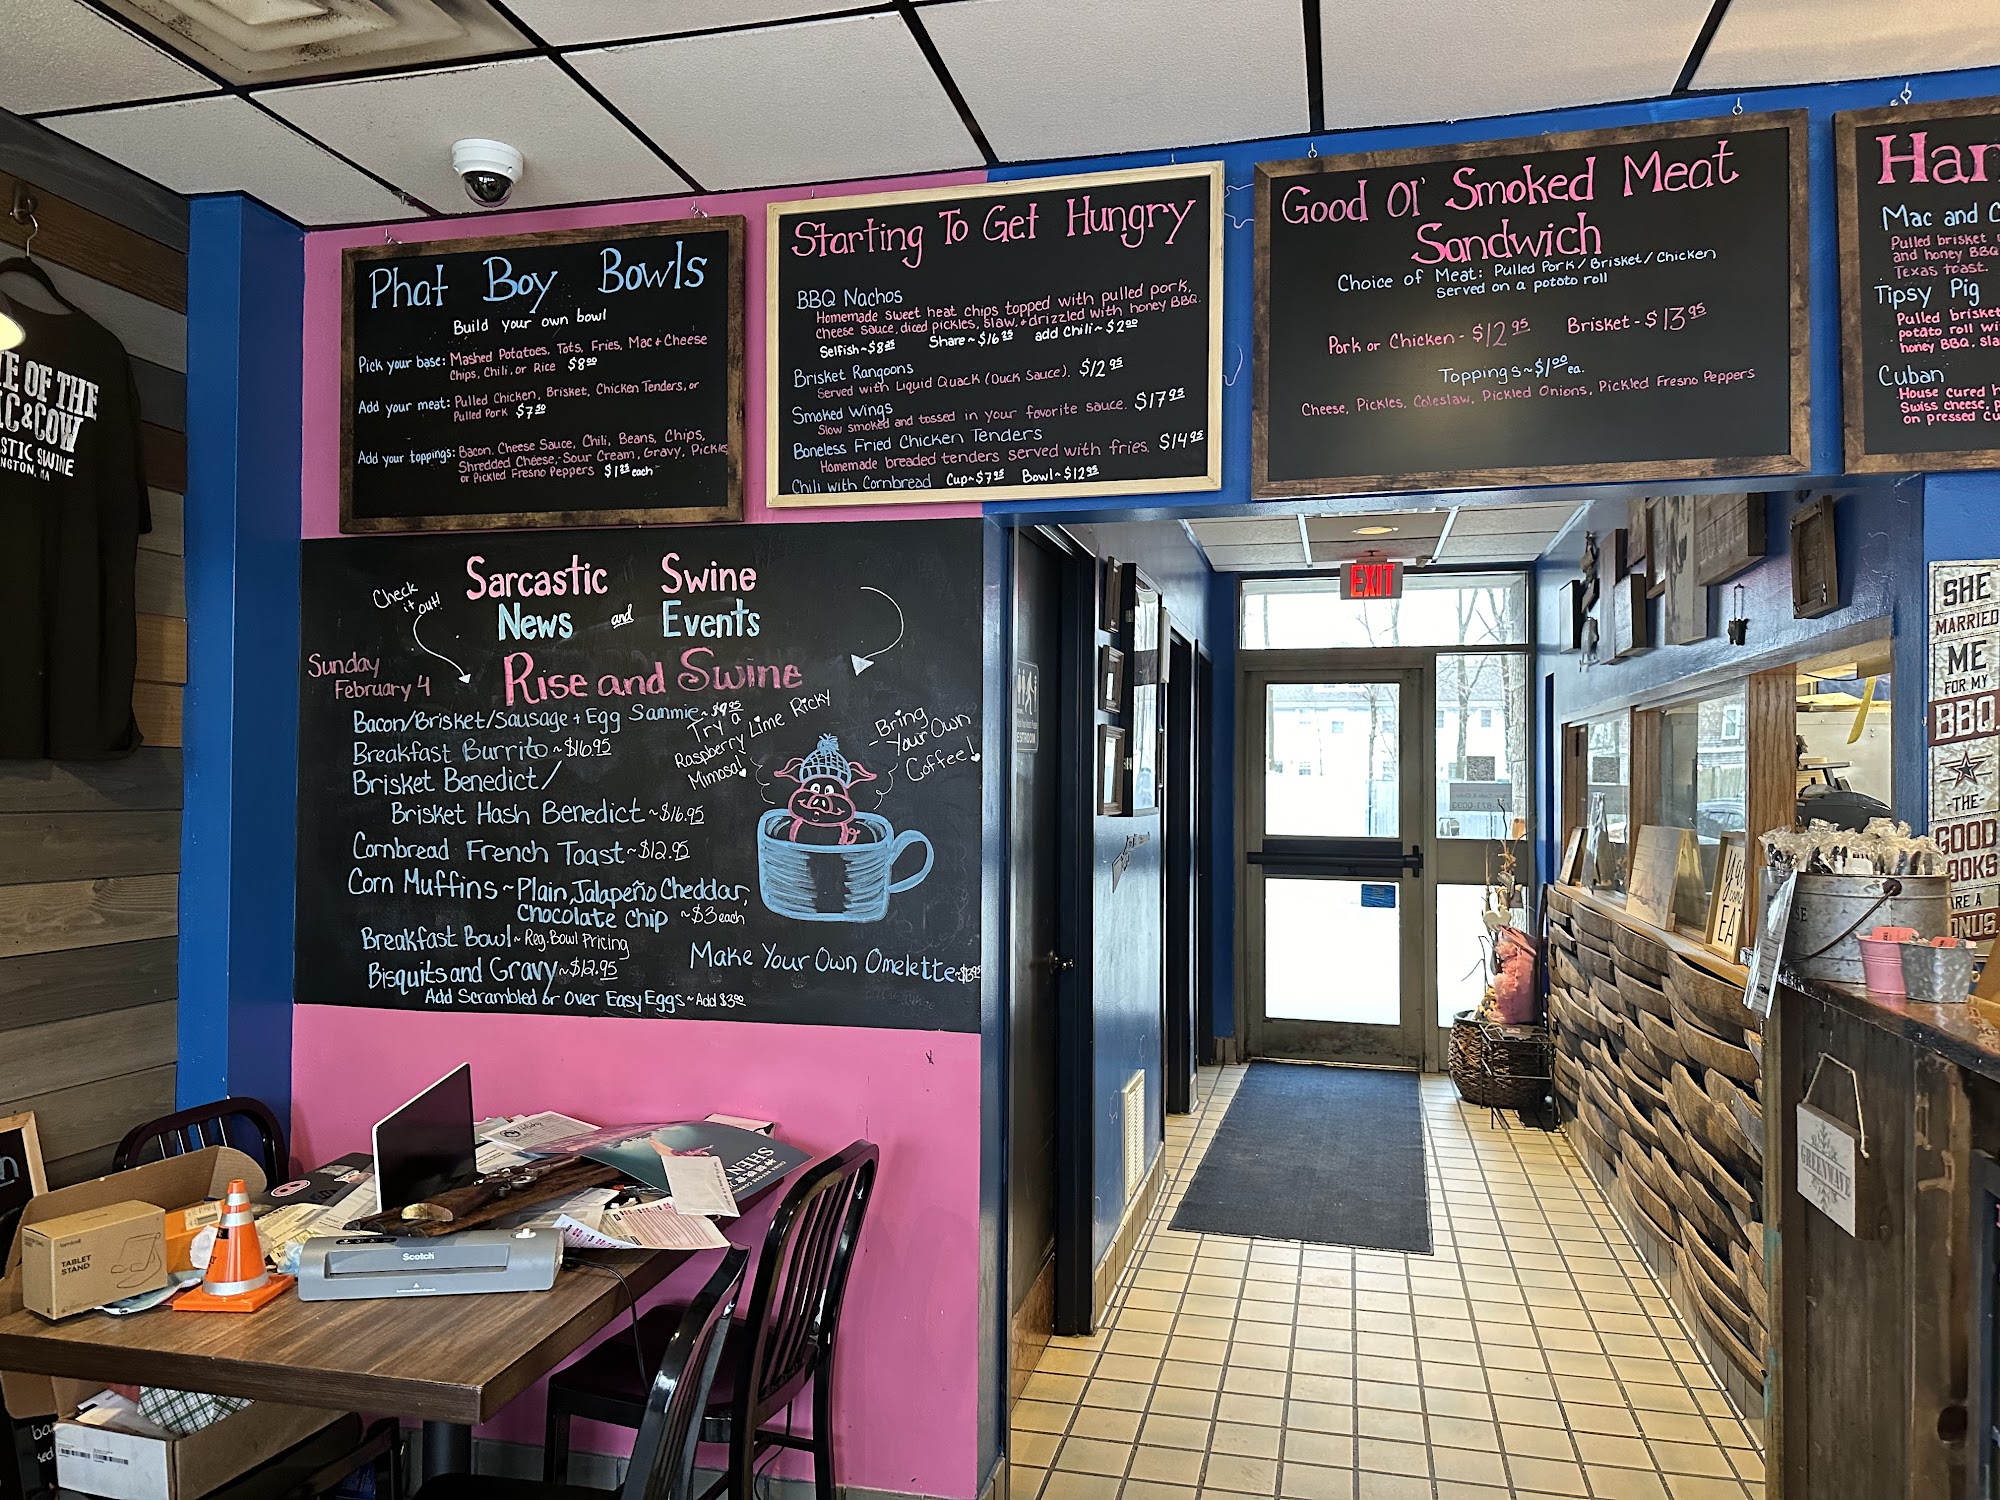 Phat Boy Bowls
Build your own bowl
Pick your base: Mashed Potatoes, Tots, Fries, Mac + Cheese
Chips, Chili, or Rice $8.00
Add your meat: Pulled Chicken, Brisket, Chicken Tenders, or
Pulled Pork $7.50
Add your toppings: Bacon, Cheese Sauce, Chili, Beans, Chips,
Shredded Cheese, Sour Cream, Gravy, Pickles
or Pickled Fresno Peppers $1.25 each
Starting To Get Hungry
BBQ Nachos
Homemade sweet heat chips topped with pulled pork,
cheese sauce, diced pickles, slaw, + drizzled with honey BBQ.
Selfish~$8.25 Share~$16.25 add Chili~$2.00
Brisket Rangoons
Served with Liquid Quack (Duck Sauce). $12.95
Smoked Wings
Slow smoked and tossed in your favorite sauce. $17.95
Boneless Fried Chicken Tenders
Homemade breaded tenders served with fries. $14.95
Chili with Cornbread Cup~$7.95 Bowl~$12.95
Good Ol' Smoked Meat
Sandwich
Choice of Meat: Pulled Pork/Brisket/Chicken
Served on a potato roll
Pork or Chicken - $12.95 Brisket - $13.95
Toppings~$1.00 ea.
Cheese, Pickles, Coleslaw, Pickled Onions, Pickled Fresno Peppers
Han
Mac and C
Pulled brisket
and honey BBQ
Texas toast.
Tipsy Pig
Pulled brisket
potato roll wi
honey BBQ, sla
Cuban
House cured h
Swiss cheese, p
on pressed Cu
E OF THE
IC & COW
ASTIC SWINE
NGTON, MA
Check
it out!
Sarcastic Swine
News and Events
Sunday
February 4
Rise and Swine
Bacon/Brisket/Sausage + Egg Sammie~$9.95
Breakfast Burrito~$16.95
Brisket Benedict/
Brisket Hash Benedict~$16.95
Cornbread French Toast~$12.95
Corn Muffins~Plain, Jalapeño Cheddar,
Chocolate Chip ~$3 each
Breakfast Bowl~Reg. Bowl Pricing
Bisquits and Gravy~$12.95
Add Scrambled or Over Easy Eggs~Add $3.00
Try a
Raspberry Lime Ricky
Mimosa!
Bring
Your Own
Coffee!
Make Your Own Omelette~$13.95
EXIT
RESTROOM
SHE
MARRIED
ME
FOR MY
BBQ.
-THE-
GOOD
OOKS
ARE A
ONUS
EA
GREENWAVE
SHEN
TABLET
STAND
Scotch